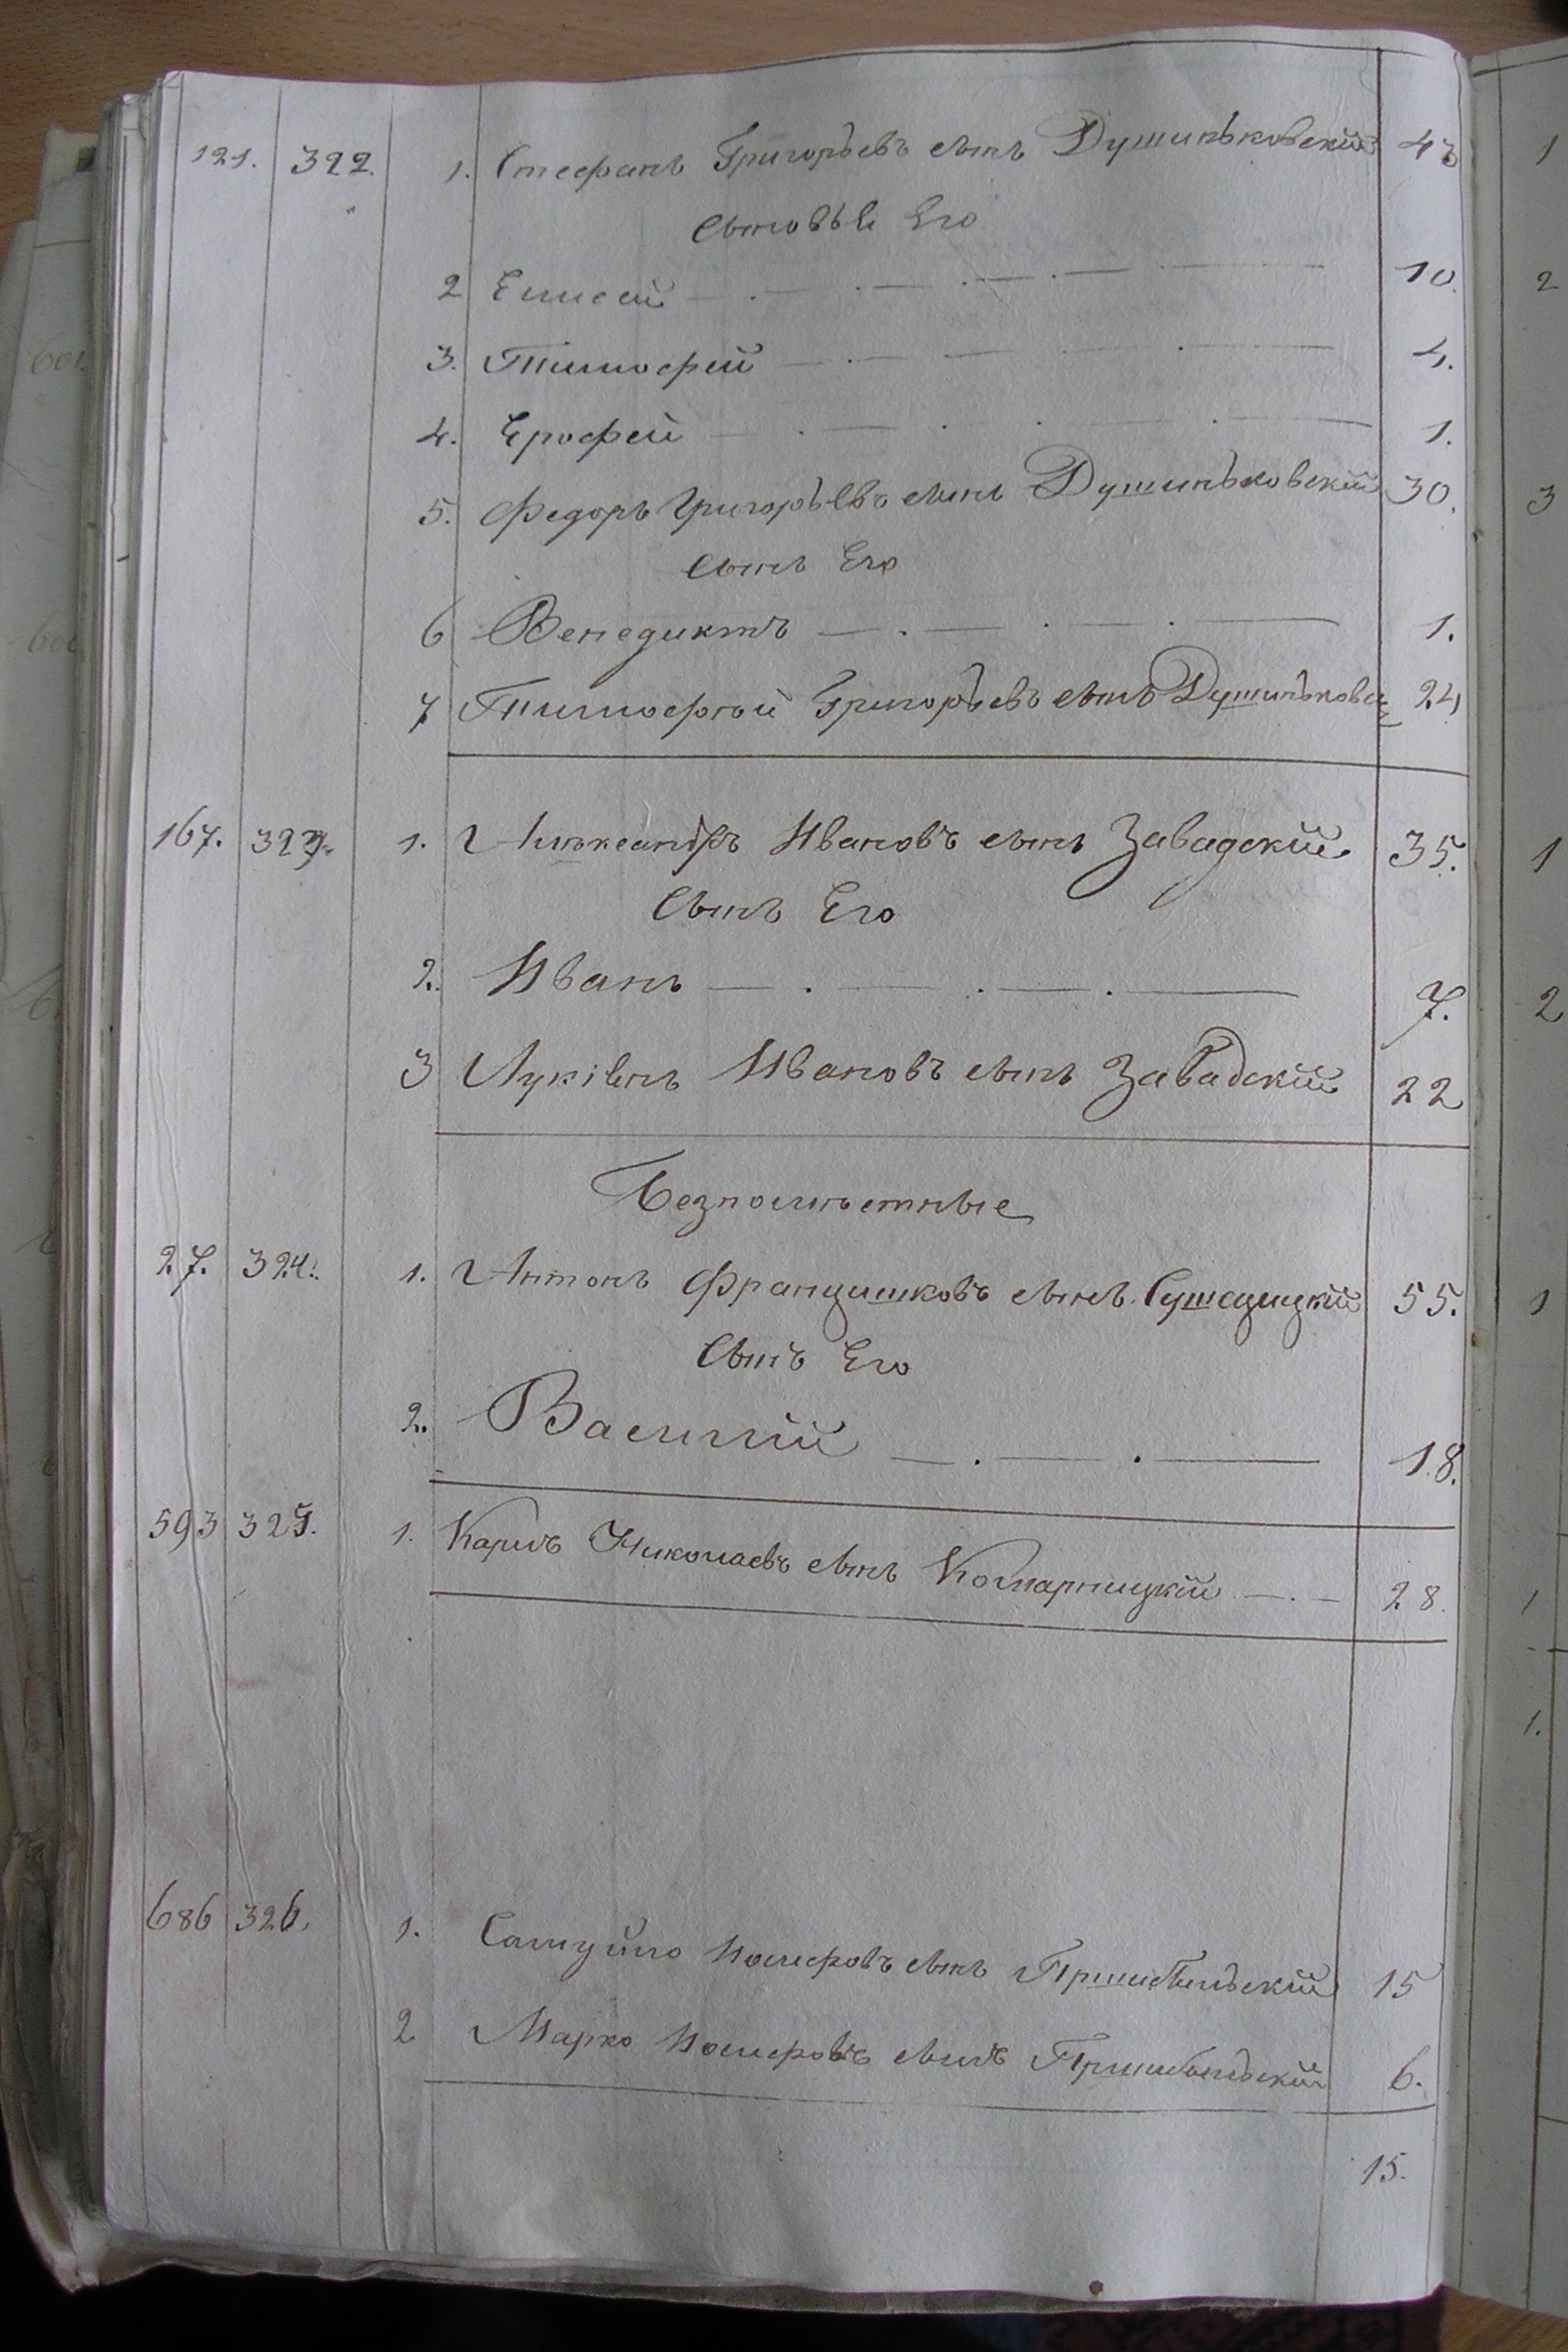 121. 322. 1. Стефанъ Григорьевъ сынъ Душиньковскій
Сыновьѣ Его
2 Елисей 10.
3. Тимофей 4.
4. Ерофей 1.
5. Федоръ Григорьевъ сынъ Душиньковскій 30.
Сынъ Его
6 Венедиктъ 1.
7 Тимофѣй Григорьевъ сынъ 24
167. 323. 1. Александръ Ивановъ сынъ Завадскій 35.
Сынъ Его
2. Иванъ 7.
3 Лукіянъ Ивановъ сынъ Завадскій 22
Безпомѣстные
27. 324. 1. Антонъ Францишковъ сынъ 55.
Сынъ Его
2. Василій 18.
593 325. 1. Карлъ Николаевъ сынъ Комарницкій 28.
686 326. 1. Самуйло Іосифовъ сынъ Пршибыльскій 15
2 Марко Іосифовъ сынъ Пршибыльскій 6.
15.
1
2
3
1
2
1
1
1.